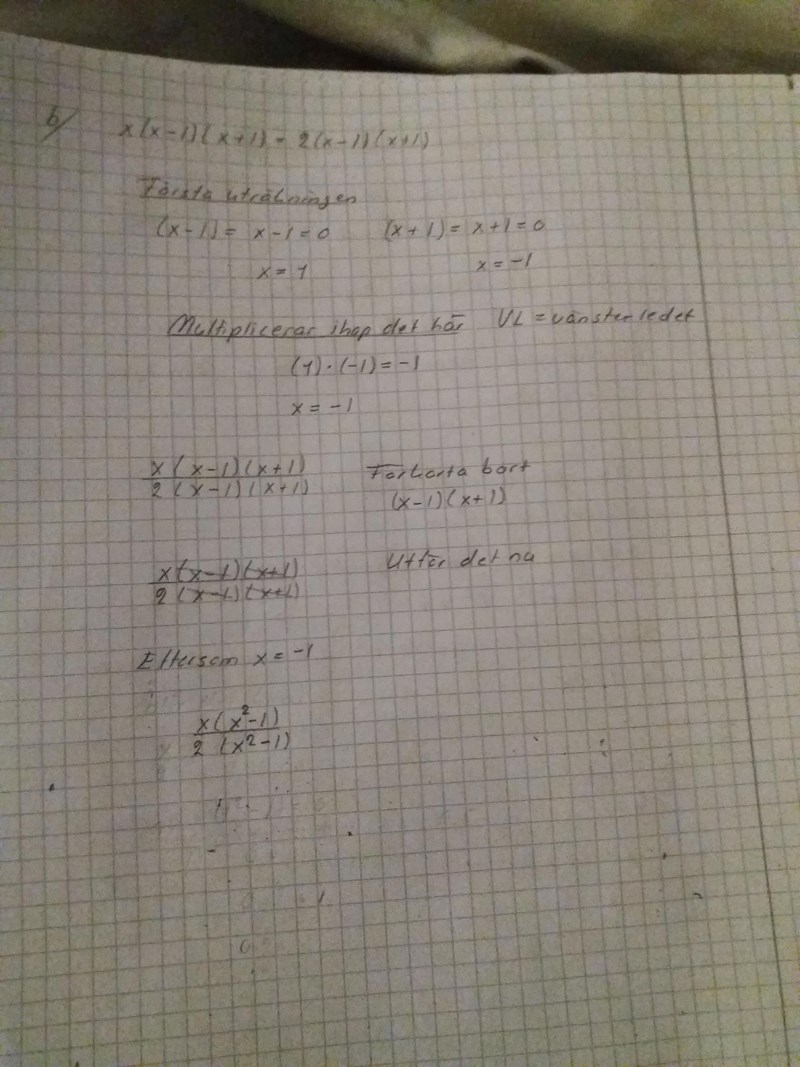 b/ x(x-1)(x+1) = 2(x-1)(x+1)
Första uträkningen
(x-1) = x-1=0 (x+1) = x+1=0
x=1 x=-1
Multiplicerar ihop det här VL = vänsterledet
(1)·(-1)=-1
x=-1
x(x-1)(x+1) Förkorta bort
2(x-1)(x+1) (x-1)(x+1)
x(x-1)(x+1) Utför det nu
2(x-1)(x+1)
Eftersom x=-1
x(x²-1)
2(x²-1)